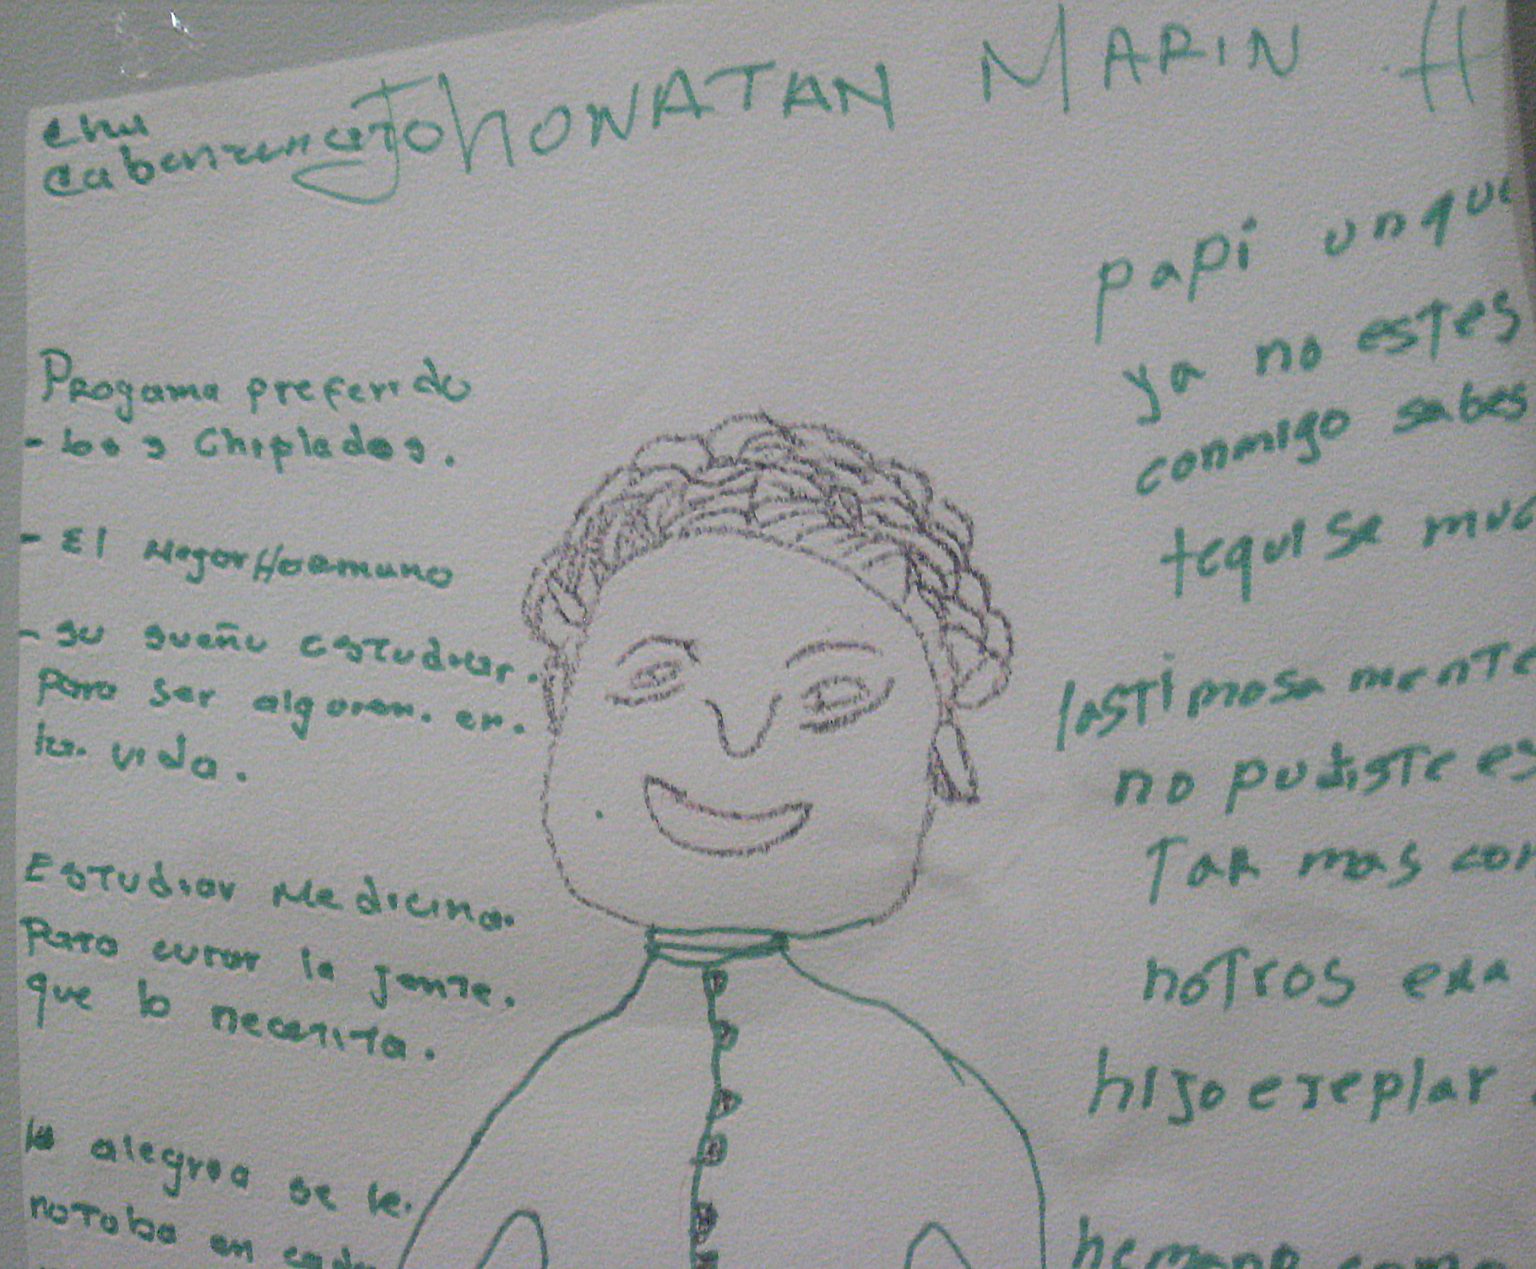 Jhonatan MARIN H
Progama preferido
- los Chiplados.
- El Mejor Hermano
- su sueño estudiar.
para ser alguien. en.
la. vida.
Estudiar Medicina.
Para curar la jente.
que lo necesita.
la alegria se le.
notaba en cada
papi unque
ya no estes
conmigo sabes
tequise muc
lastimosa mente
no pudiste es
Tar mas con
notros exa
hijo ejeplar
hemano como